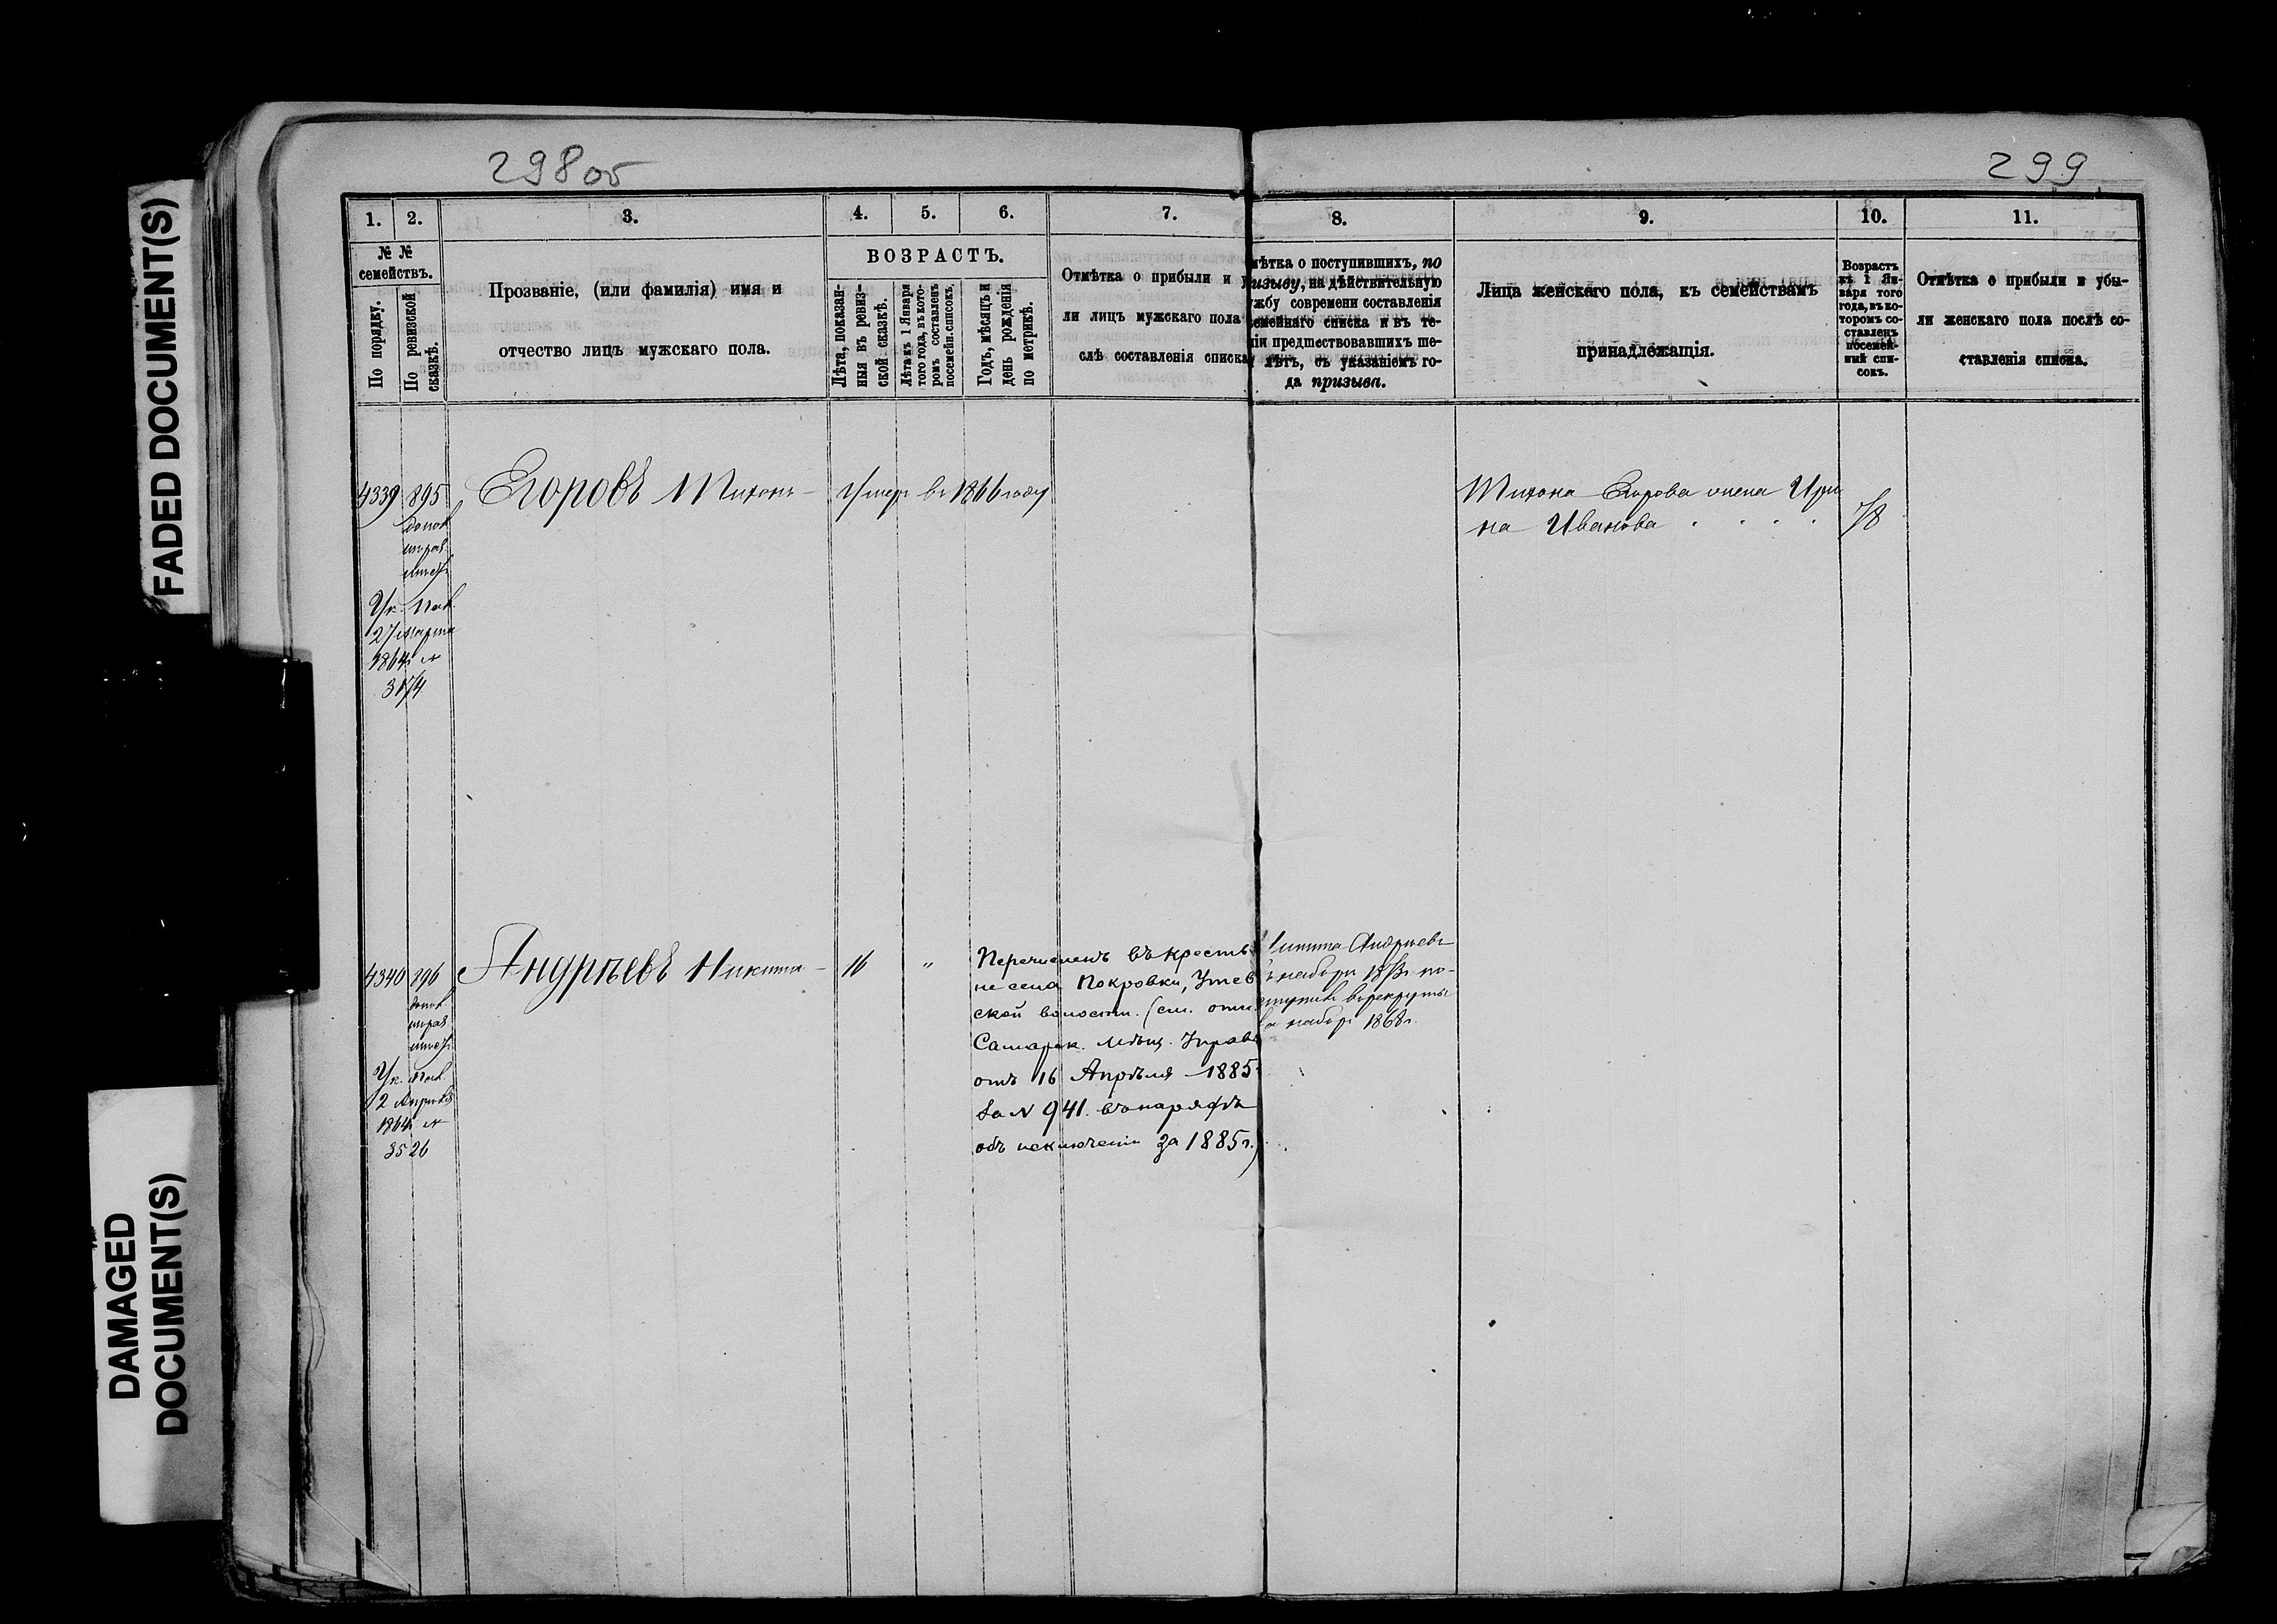 FADED DOCUMENT(S)
DAMAGED
DOCUMENT(S)
298об
299
1.
2.
3.
4.
5.
6.
7.
8.
9.
10.
11.
№ №
семействъ.
По порядку.
По ревизской
сказкѣ.
Прозваніе, (или фамилія) имя и
отчество лицъ мужскаго пола.
ВОЗРАСТЪ.
Лѣта, показан-
ныя въ ревиз-
ской сказкѣ.
Лѣта къ 1 Января
того года, въ кото-
ромъ составленъ
посемейн. списокъ.
Годъ, мѣсяцъ и
день рожденія
по метрикѣ.
Отмѣтка о прибыли и у
ли лицъ мужскаго пола
слѣ составленія списка
мѣтка о поступившихъ, по
изыву, на дѣйствительную
жбу современи составленія
семейнаго списка и въ те-
іи предшествовавшихъ ше-
лѣтъ, съ указаніемъ го-
да призыва.
Лица женскаго пола, къ семействамъ
принадлежащія.
Возрастъ
къ 1 Ян-
варя того
года, въ ко-
торомъ со-
ставленъ
посемей-
ный спи-
сокъ.
Отмѣтка о прибыли и убы-
ли женскаго пола послѣ со-
ставленія списка.
4339 895
Егоровъ Тихонъ - Умер въ 1866 году
Тихона Егорова жена Ири
на Иванова . . . . 78
Ук. Пал.
27 марта
1864г №
3174
4340 896
Андрѣевъ Никита - 16 "
Ук. Пал.
2 Апрѣля
1864г №
3526
Перечисленъ въ кресть
не села Покровки, Утев
ской волости. (см. отн.
Самарск. Мѣщ. Управ
отъ 16 Апрѣля 1885
за N 941. въ нарядѣ
объ исключеніи за 1885 г.)
Никита Андрѣевъ
наборъ 1868г.